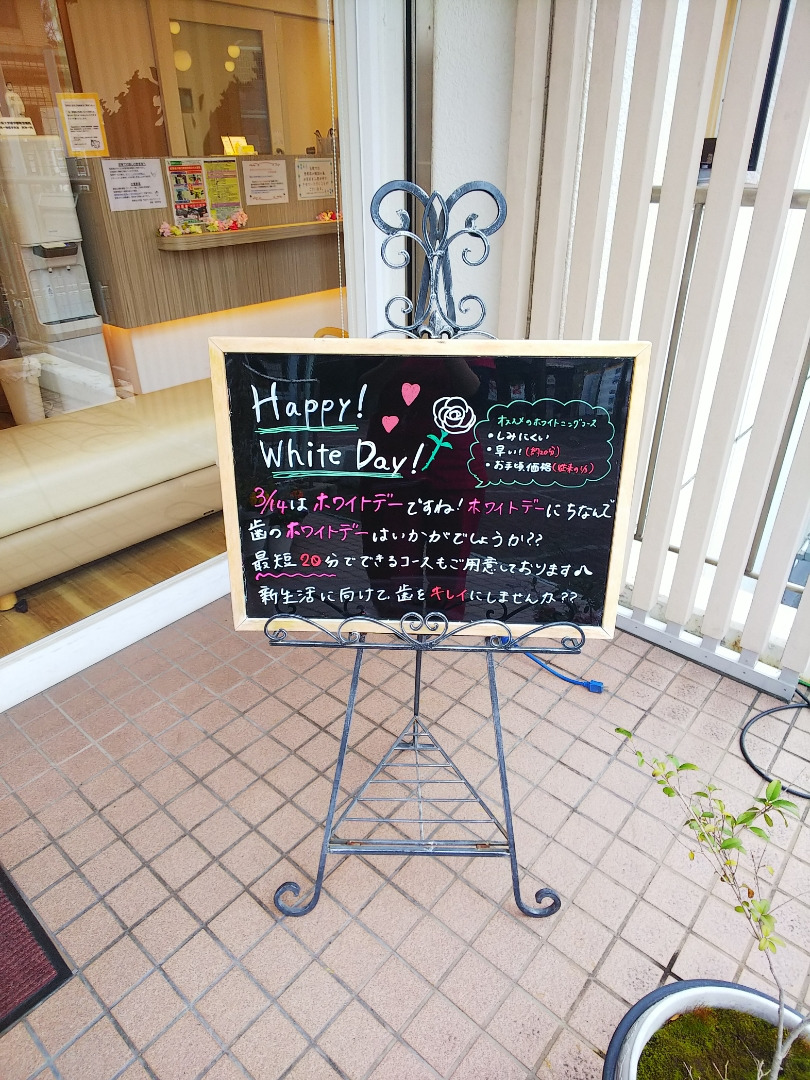 Happy!
White Day!
オススメのホワイトニングコース
・しみにくい
・早い!(約20分)
・お手頃価格(従来の1/3)
3/14はホワイトデーですね!ホワイトデーにちなんで
歯のホワイトデーはいかがでしょうか??
最短20分でできるコースもご用意しております♪
新生活に向けて歯をキレイにしませんか??